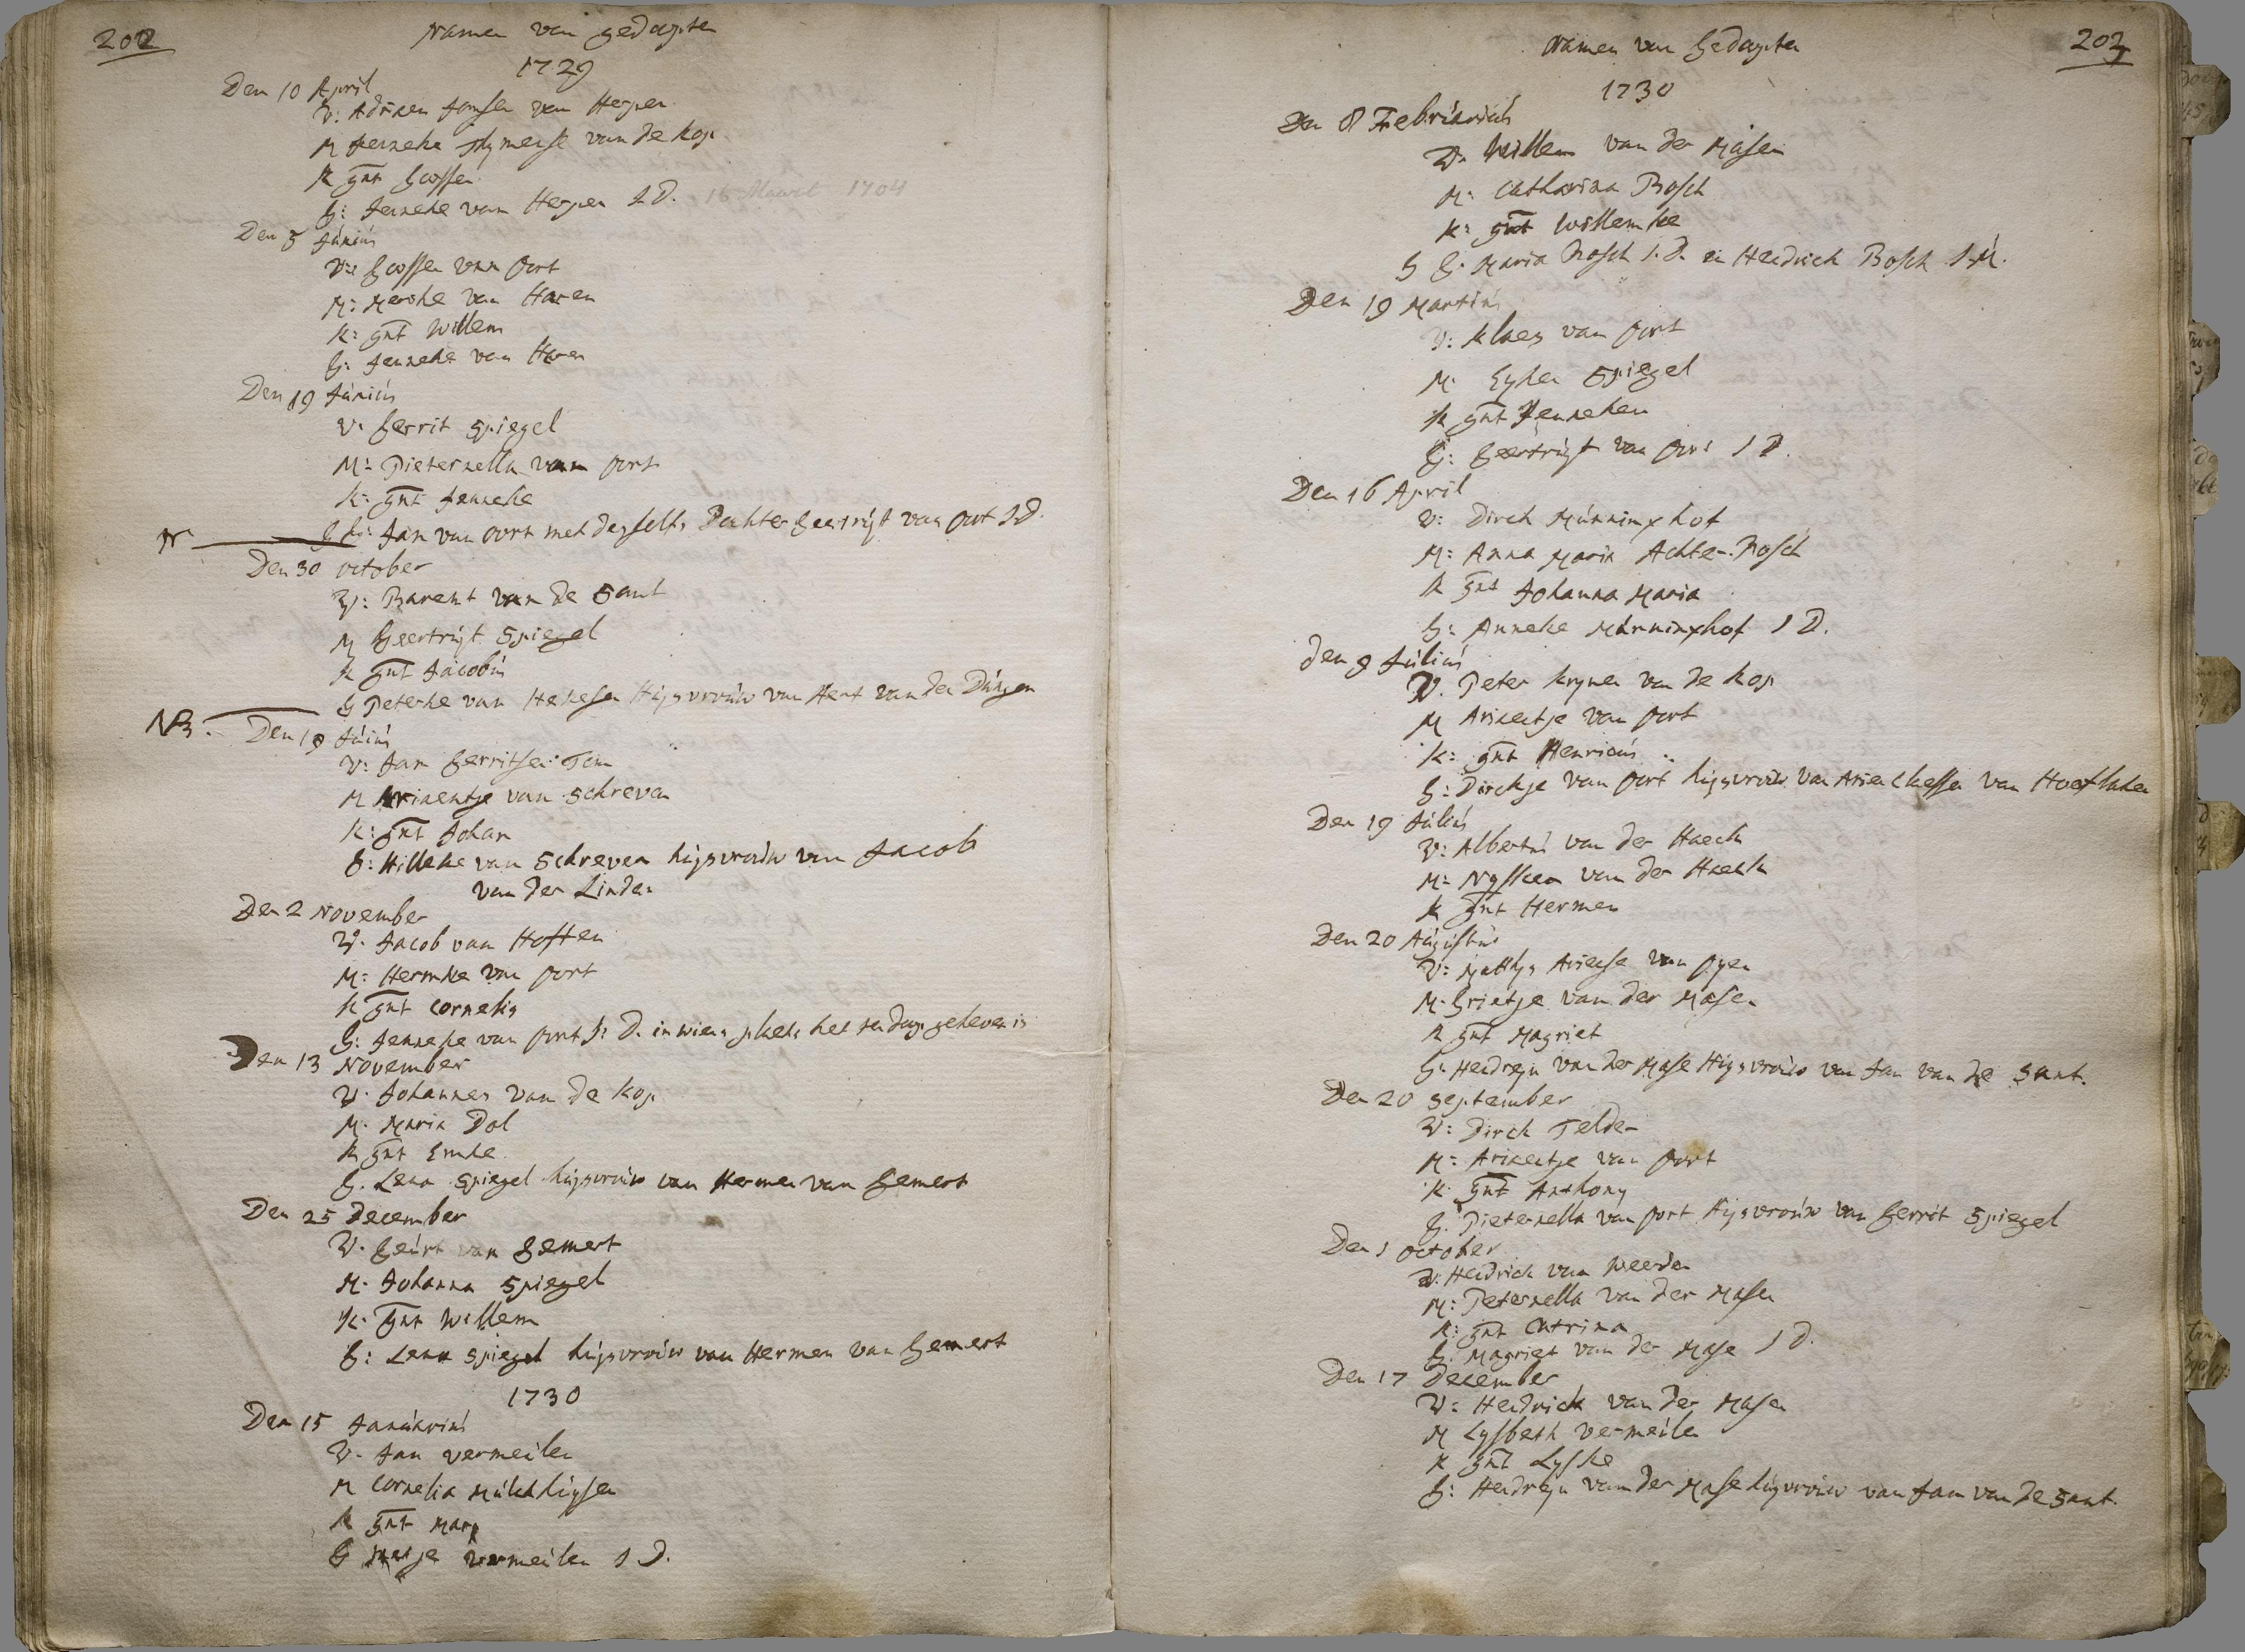 202
Namen van gedoopten
1729
Den 10 April
V: Adriaen Jansen van Herpen
M Jenneke Thymense van de Kop
K gnt Goossen
G: Jenneke van Herpen J D. 16 Maart 1704
Den 5 Júniús
V: Goossen van Oort
M: Merske van Haren
K: gnt Willem
G: Jenneke van Haren
Den 19 Júniús
V. Gerrit Spiegel
M: Pieternella van Oort
K: gnt Jenneke
G G: Jan van Oort met desselfs Dochter Geertrúyt van Oort J D.
N
Den 30 october
V: Barent van de Sant
M Geertrúyt Spiegel
K gnt Jacobús
G Peterke van Hekesen Húysvroúw van Aert van den Dúngen
NB. Den 19 Júniús
V: Jan Gerritsen Tem
M Arinentje van Schreven
K: gnt Johan
G: Hilleke van Schreven húysvroúw van Jacob
van der Linden
Den 2 November
V. Jacob van Hoften
M: Hermke van Oort
K gnt Cornelis
G: Jenneke van Oort J: D. in wiens plaets het ten doop geheven is
Den 13 November
V. Johannes van de Kop
M. Maria Dol
K gnt Emke
G. Lena Spiegel húysvroúw van Hermen van Gemert
Den 25 December
V. Geúrt van Gemert
M. Johanna Spiegel
K. gnt Willem
G: Lena Spiegel húysvroúw van Hermen van Gemert
1730
Den 15 Janúariús
V. Jan Vermeúlen
M Cornelia
K gnt
G Vermeúlen J D.
203
Namen van Gedoopten
1730
Den 8 Febriúariús
V. Willem van der Masen
M: Catharina Bosch
K: gnt Willemke
G G. Maria Bosch J. D. en Hendrick Bosch J. M.
Den 19 Martiús
V: Klaes van Oort
M. Eyken Spiegel
K gnt Jenneken
G: Geertrúyt van Oort J D.
Den 16 April
V: Dirck Múnninxhof
M: Anna Maria Achter-Bosch
K gnt Johanna Maria
G: Anneke Múnninxhof J D.
Den 9 Júliús
V. Peter Krynen van de Kop
M Arinentje van Oort
K: gnt Henricús
G: Dirckje van Oort húysvroúw van Arien Claessen van Hoeflaken
Den 19 Júliús
V: Albertús van der Haeck
M: Nysken van der Haeck
K gnt Hermen
Den 20 Aúgústús
V: Matthys Ariense van Oyen
M. Grietje van der Masen
K gnt Magriet
G. Hendryn van der Mase Húysvroúw van Jan van de Sant.
Den 20 September
V: Dirck Telder
M: Arinentje van Oort
K: gnt Anthony
G. Pieternella van Oort Húysvroúw van Gerrit Spiegel
Den 1 october
V. Hendrick van Weerden
M: Peternella van der Masen
K: gnt Catrina
G. Magriet van der Mase J D.
Den 17 December
V: Hendrick van der Masen
M Lysbeth Vermeúlen
K gnt Lyske
G: Hendryn van der Mase húysvroúw van Jan van de Sant.